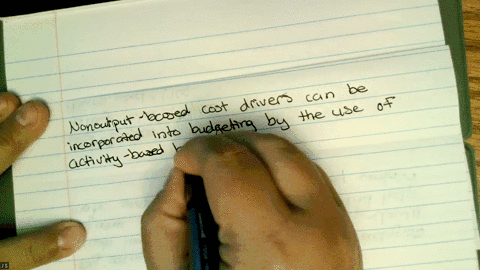 Nonoutput-based cost drivers can be
incorporated into budgeting by the use of
activity-based